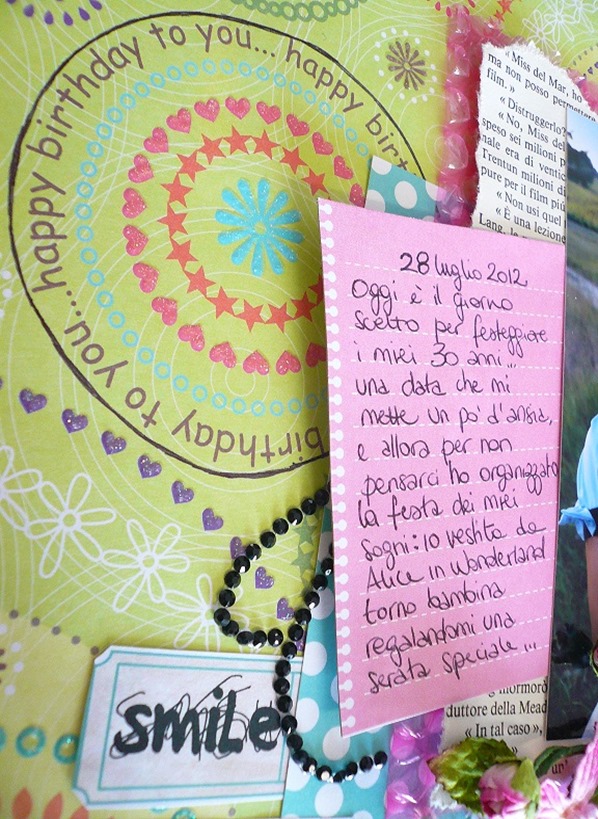 happy birthday to you... happy birt
birthday to you...
« Miss del Mar, ho
ma non posso permetter
film. »
« Distruggerlo?
« No, Miss del
speso sei milioni p
nale era di ventic
Trentun milioni di
pure per il film più
« Non usi quel
« È una lezione
Lang, le
28 luglio 2012
Oggi è il giorno
scelto per festeggiare
i miei 30 anni...
una data che mi
mette un po' d'ansia,
e allora per non
pensarci ho organizzato
la festa dei miei
sogni: io vestita da
Alice in Wonderland
torno bambina
regalandomi una
serata speciale...
smile
mormorò
duttore della Mead
« In tal caso »,
un'